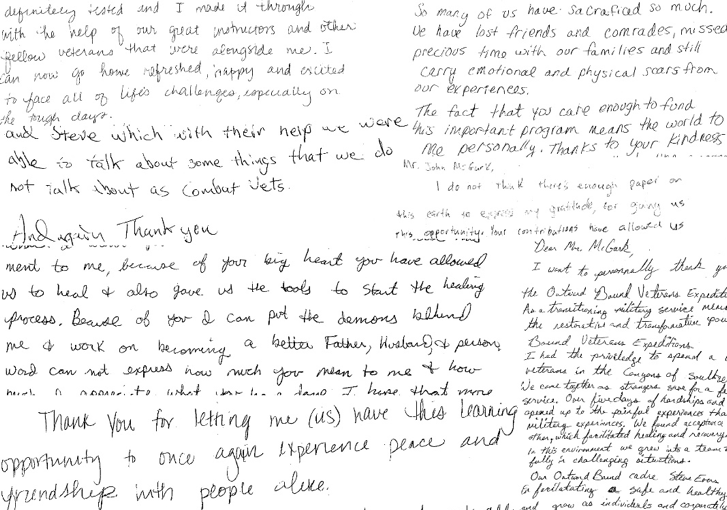 definitely tested and I made it through
with the help of our great instructors and other
fellow veterans that were alongside me. I
can now go home refreshed, happy and excited
to face all of life's challenges, especially on
the tough days.
and Steve which with their help we were
able to talk about some things that we do
not talk about as Combat Vets.
And again Thank you
ment to me, because of your big heart you have allowed
us to heal & also gave us the tools to start the healing
process. Because of you I can put the demons behind
me & work on becoming a better Father, Husband, & person,
word can not express how much you mean to me & how
Thank you for letting me (us) have this learning
opportunity to once again experience peace and
friendship with people alike.
So many of us have sacraficed so much.
We have lost friends and comrades, missed
precious time with our families and still
carry emotional and physical scars from
our experiences.
The fact that you care enough to fund
this important program means the world to
me personally. Thanks to your kindness
Mr. John McGark,
I do not think there's enough paper on
this earth to express my gratitude, for giving us
this opportunity. Your contributions have allowed us
Dear Mr. McGark,
I want to personally thank
the Outward Bound Veterans
As a transitioning military service
the restorative and transformative
Bound Veterans Expeditions.
I had the privilege to spend a
veterans in the Canyons of
We came together as strangers save for a
service. Our five days of hardships and
opened up to the painful experiences
military experiences. We found acceptance
other, which facilitated healing and recovery.
In this environment we grew into a team
fully in challenging situations.
Our Outward Bound cadre, Steve
in facilitating a safe and healthy
and grow as individuals and